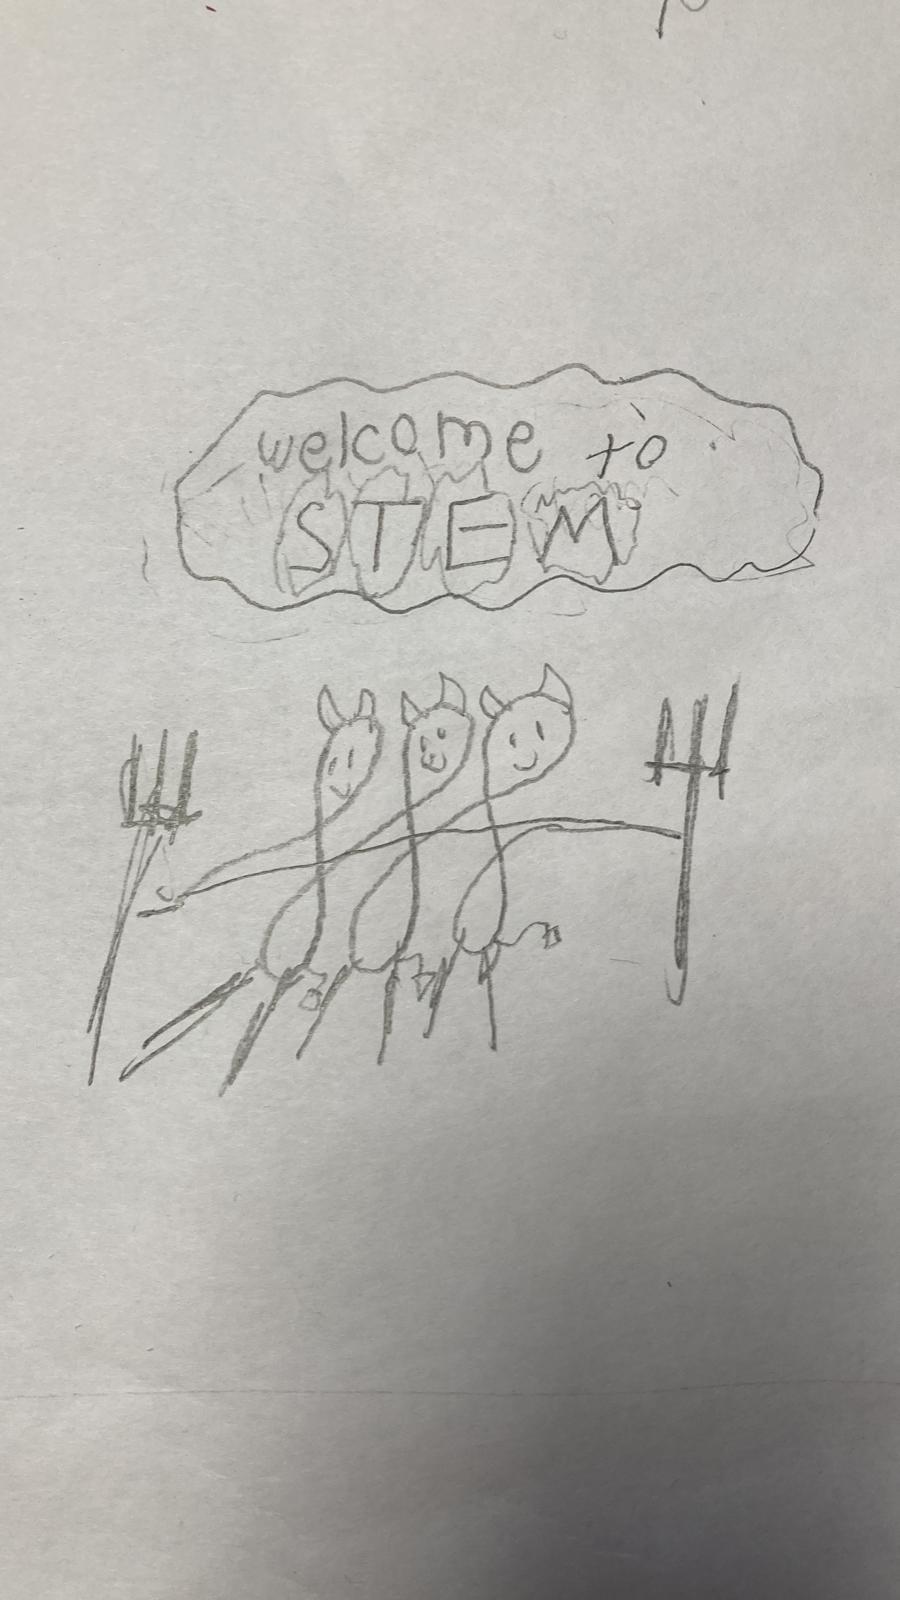 welcome to
STEM